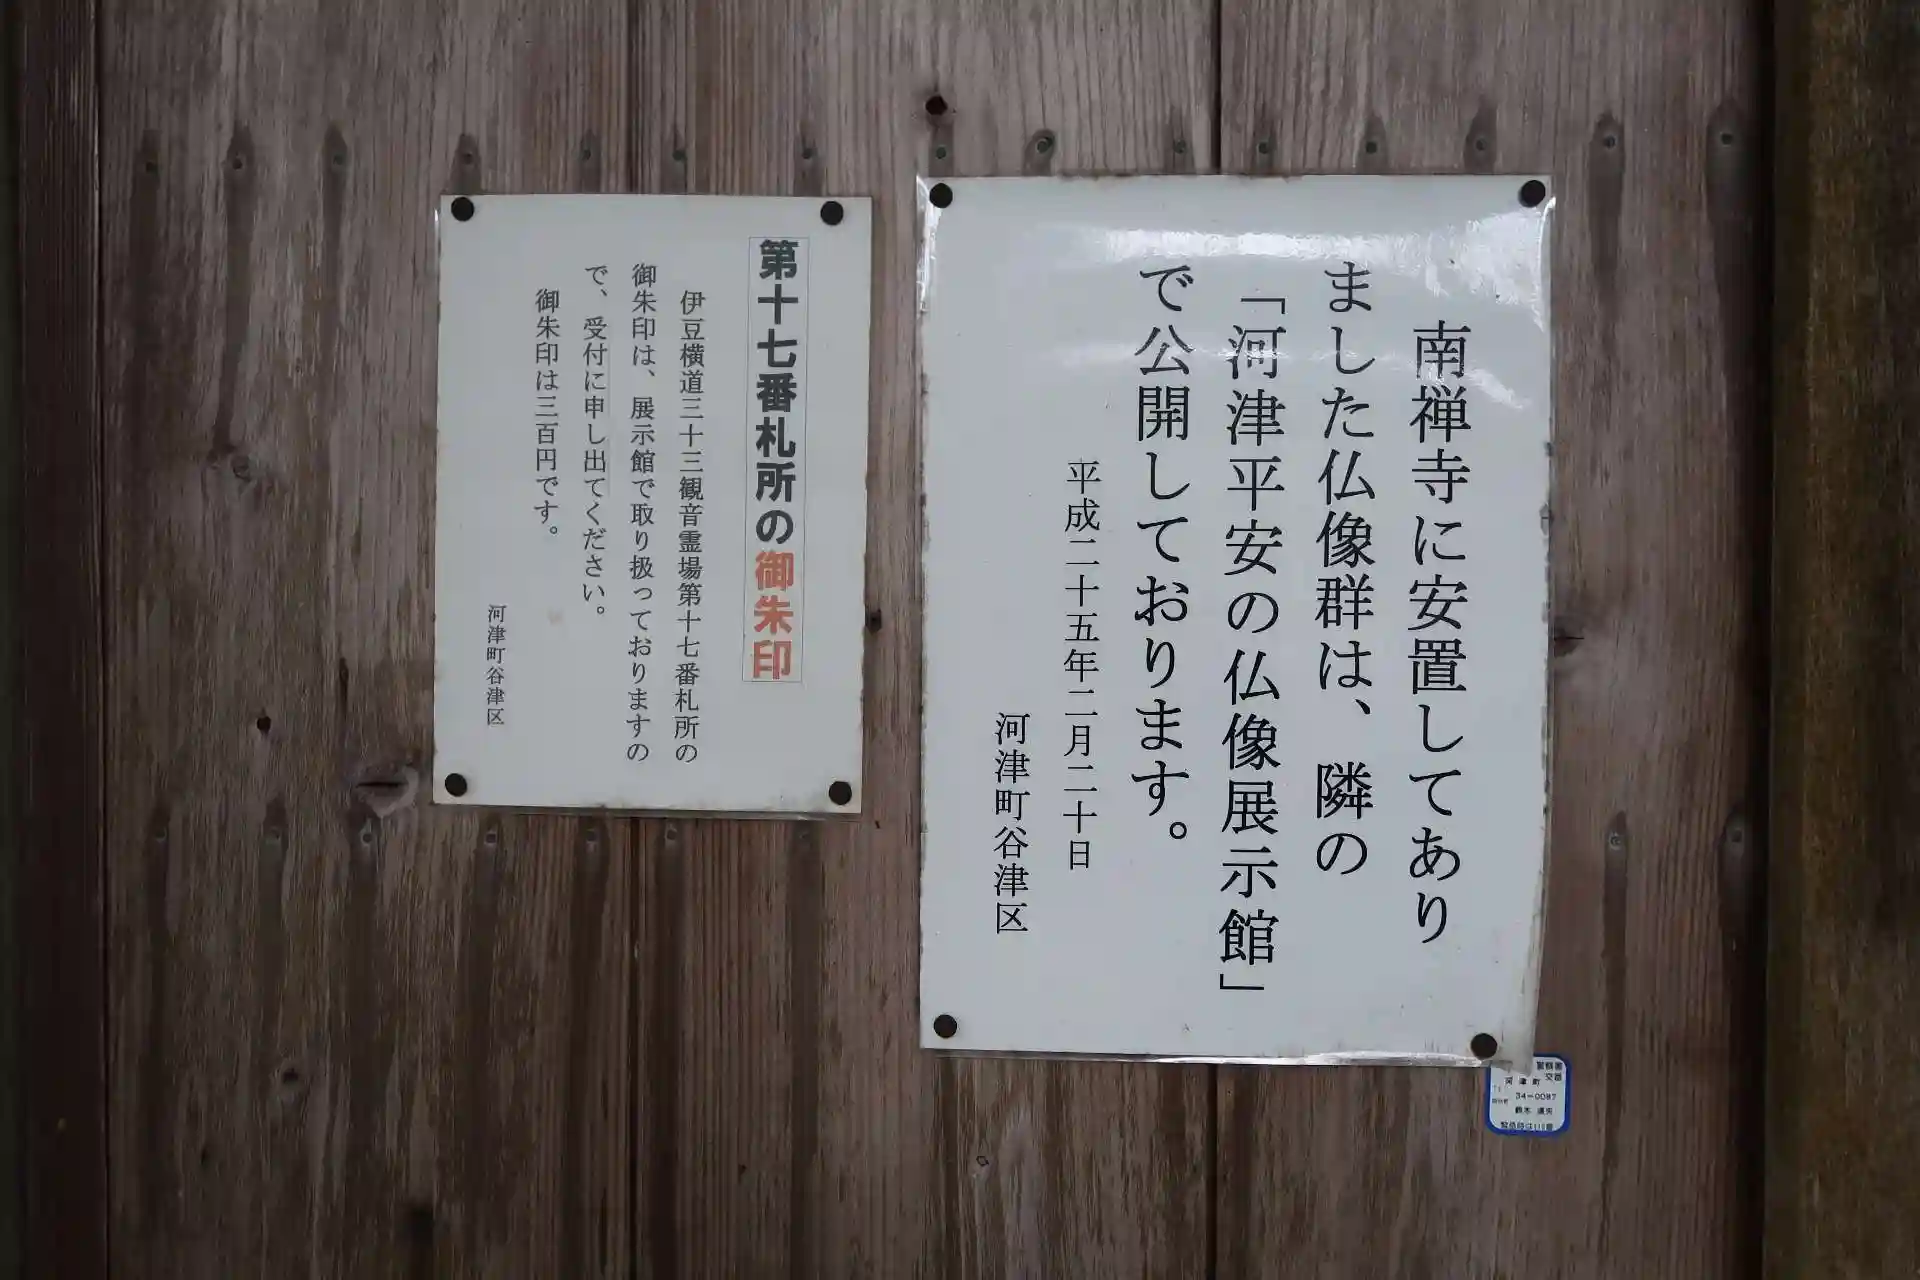 南禅寺に安置してあり
ました仏像群は、隣の
「河津平安の仏像展示館」
で公開しております。
平成二十五年二月二十日
河津町谷津区
第十七番札所の御朱印
伊豆横道三十三観音霊場第十七番札所の
御朱印は、展示館で取り扱っておりますの
で、受付に申し出てください。
御朱印は三百円です。
河津町谷津区
警察署
交番
河津町
34-0087
鈴木
緊急時は110番